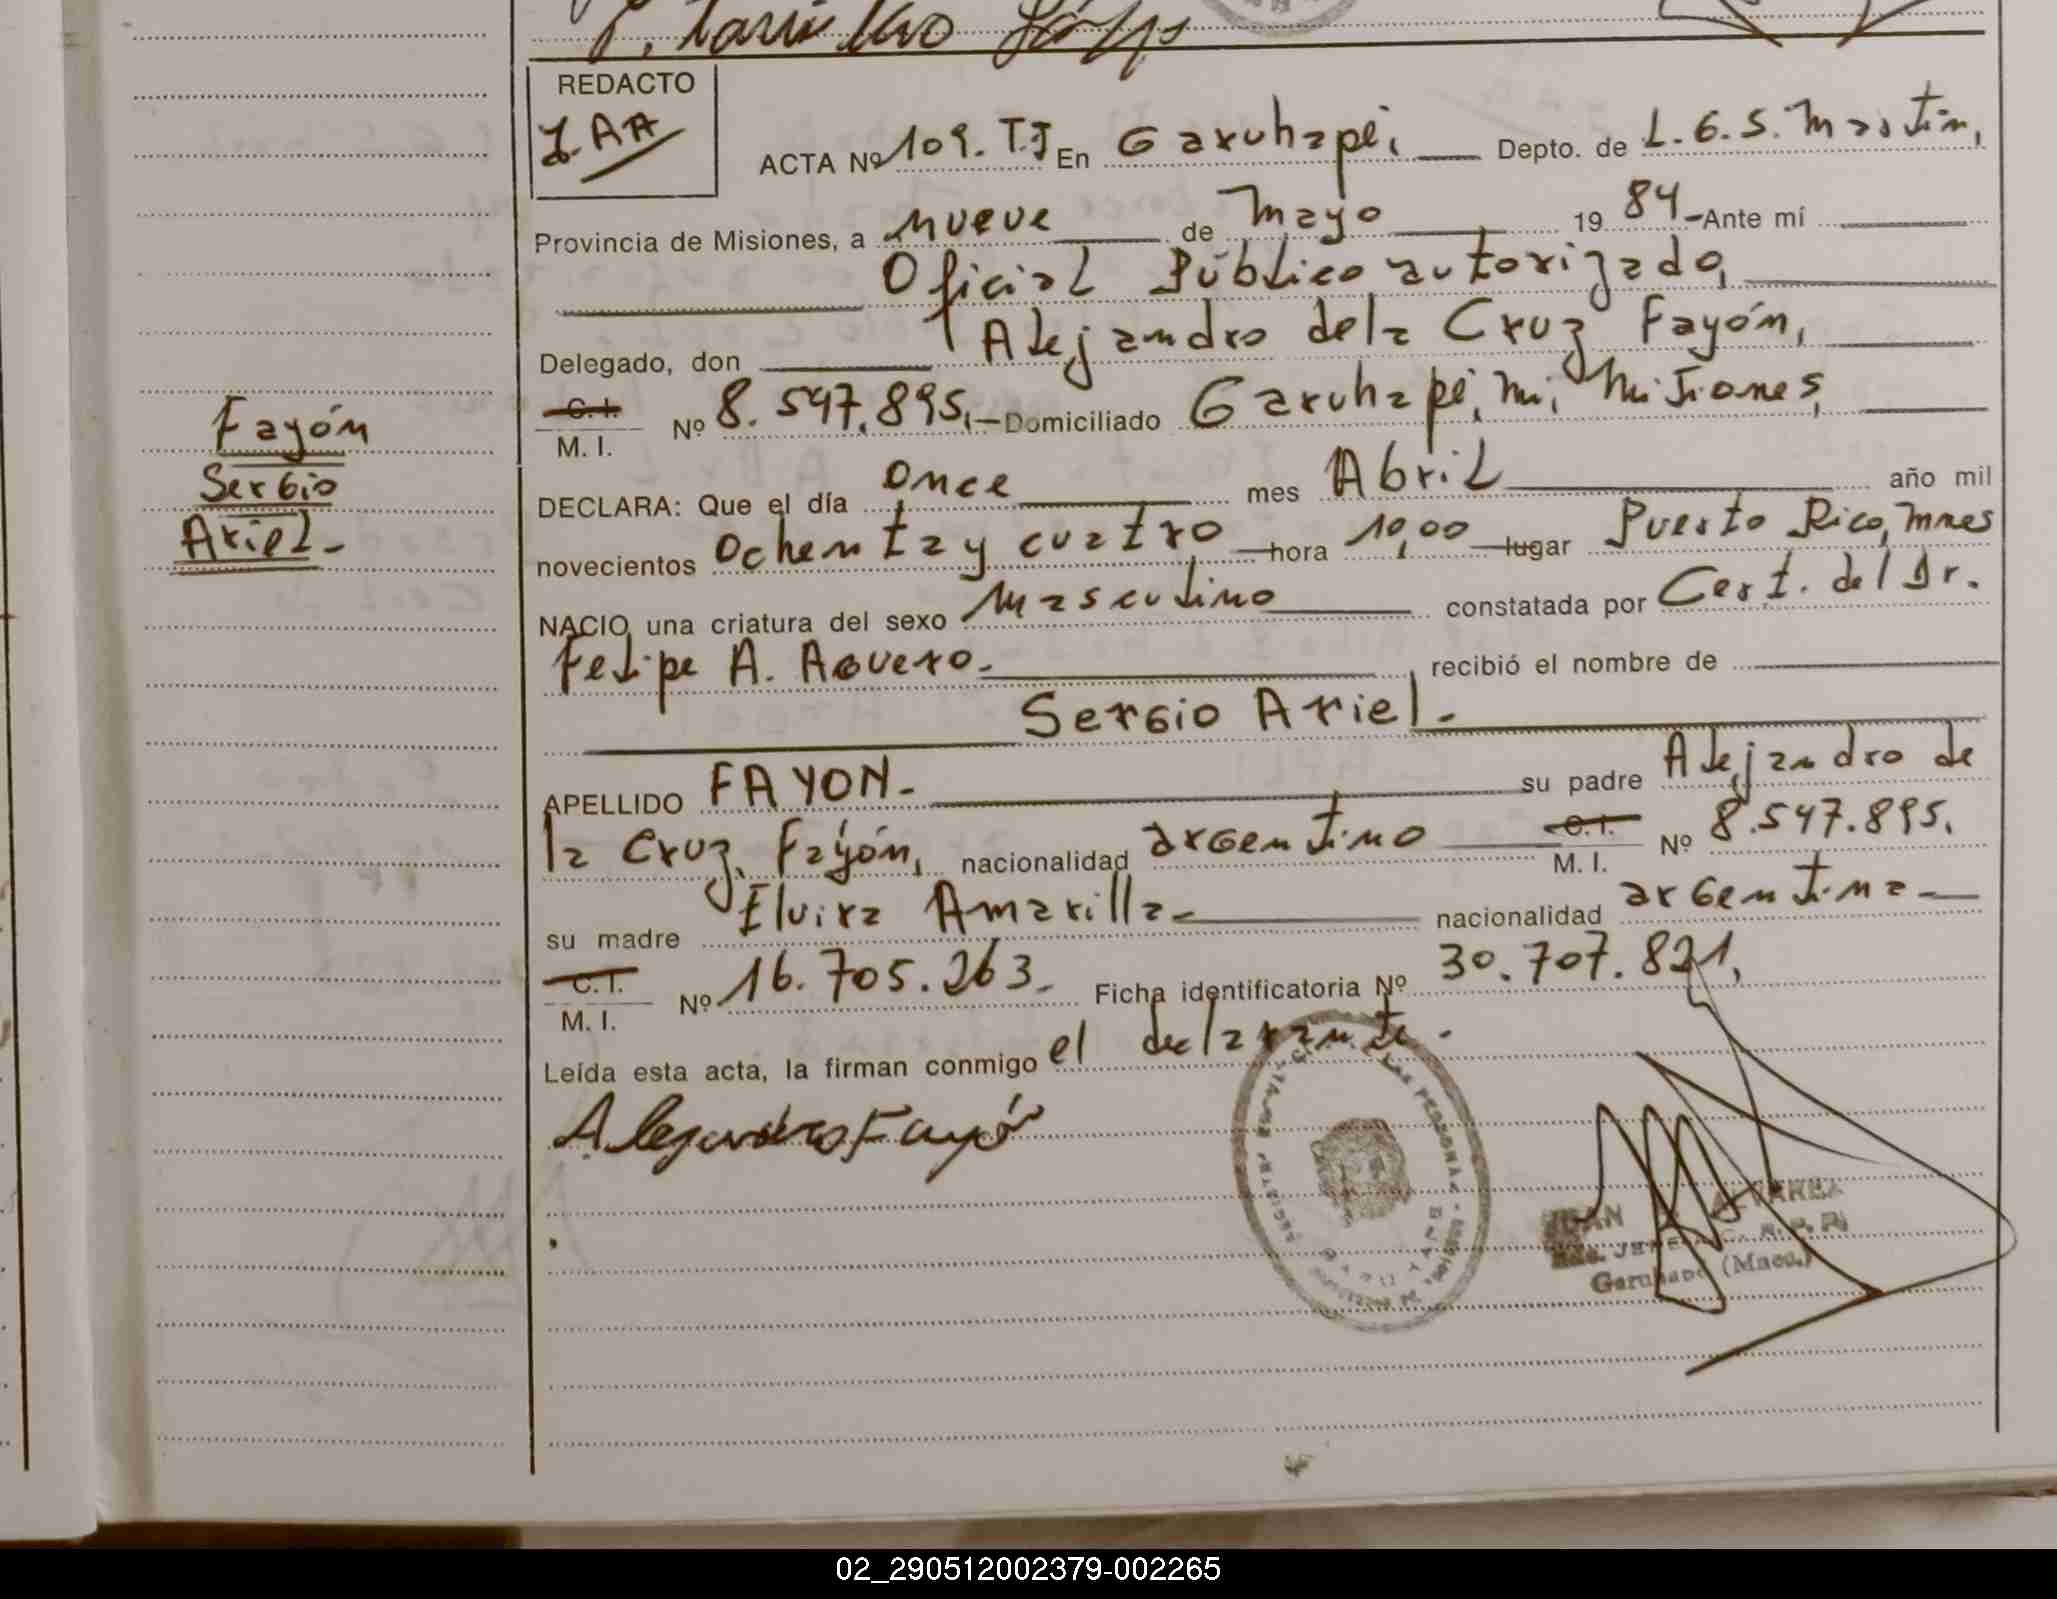 REDACTO
ACTA Nº 109. T.J En Garuhapé, Depto. de L.G.S. Martín,
Provincia de Misiones, a nueve de Mayo 1984 Ante mí
Oficial Público autorizado,
Delegado, don Alejandro de la Cruz Fayón,
C. I.
M. I. Nº 8.547.895, Domiciliado Garuhapé, Mi, Misiones,
Fayón
Sergio
Ariel.
DECLARA: Que el día once mes Abril año mil
novecientos ochenta y cuatro hora 10,00 lugar Puerto Rico, Mnes
NACIO una criatura del sexo masculino constatada por Cert. del Dr.
Felipe A. Aguero. recibió el nombre de
Sergio Ariel.
APELLIDO FAYON. su padre Alejandro de
la Cruz Fayón, nacionalidad argentino C. I. M. I. Nº 8.547.895.
su madre Elvira Amarilla nacionalidad argentina
C. I.
M. I. Nº 16.705.263. Ficha identificatoria Nº 30.707.821,
Leída esta acta, la firman conmigo el declarante.
Alejandro Fayón
JUAN ALVAREZ
Garuhape (Mnes.)
02_290512002379-002265